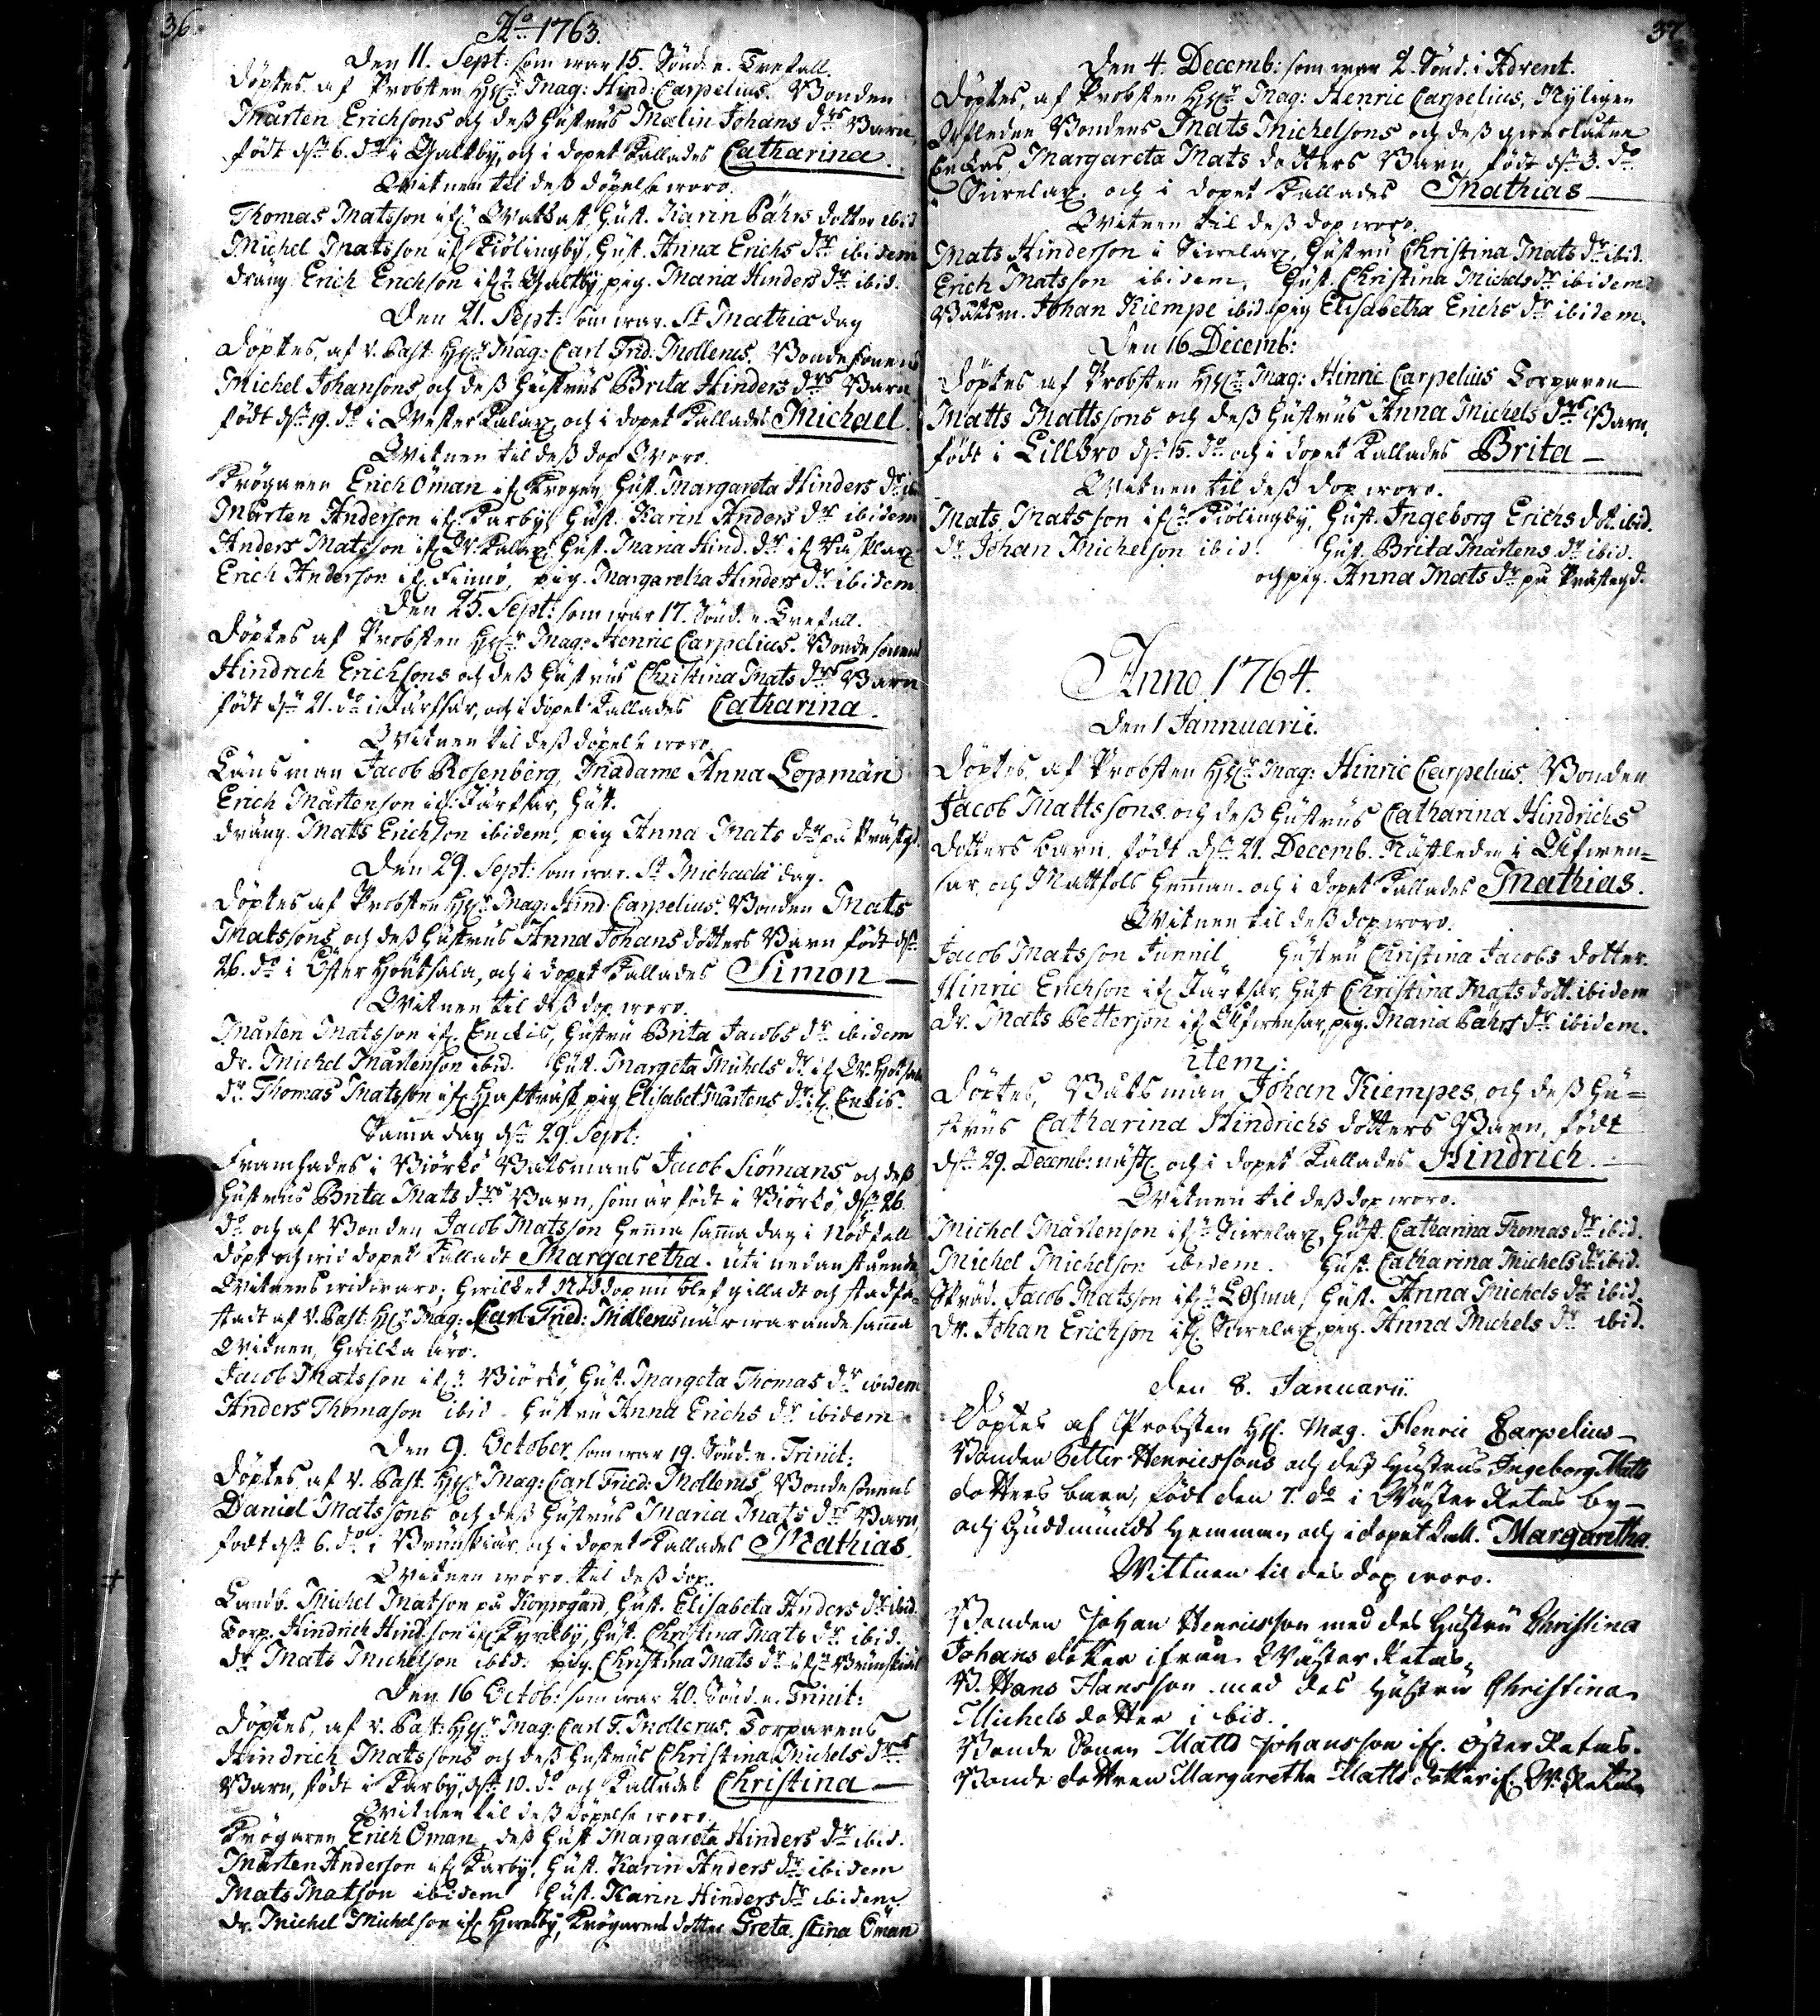 36.
Ao 1763.
Den 11. Sept: som war 15. Sönd. e. Trefall.
Döptes, af Probsten HEr Mag: Hind: Carpelius. Bonden
Mårten Erichsons och deß Hustrus Malin Johans drs Barn,
födt dn 6. do i Galtby, och i dopet Kallades Catharina.
Witnen til deß döpelse woro.
Thomas Matsson if: Wattkast, Hust. Karin Påhrs dotter ibid
Michel Matsson if: Kiölingby, Hust. Anna Erichs dr ibidem
dräng. Erich Erichson if: Galtby, pig. Maria Hinders dr ibid.
Den 21. Sept: som war. St Mathiæ dag
Döptes, af V. Past. HEr Mag: Carl Frid: Mollerus. Bondesonens
Michel Johansons och deß Hustrus Brita Hinders drs Barn
födt dn 19. do i Wester Kalax och i dopet Kallades Michael.
Witnen til deß dop Woro.
Krögaren Erich Öman if Krogen, Hust. Margareta Hinders dr ib
Mårten Anderson if: Karby, Hust. Karin Anders dr ibidem
Anders Matsson if W. Kalax, Hust. Maria Hind. dr if
Erich Anderson if Finnö, pig. Margaretha Hinders dr ibidem
Den 25. Sept: som war 17. Sönd. e. Trefall.
Döptes af Probsten HEr Mag: Henric Carpelius. Bondesonens
Hindrich Erichsons och deß Hustrus Christina Mats drs Barn
födt dn 21. do i Järfsar, och i dopet Kallades Catharina.
Witnen til deß döpelse woro.
Länsman Jacob Rosenberg, Madame Anna Lopman
Erich Mårtenson if: Järfsar, Hust.
dräng. Mats Erichson ibidem, pig Anna Mats dr på Prästgd.
Den 29. Sept: som war. St Michaels dag.
Döptes af Probsten HEr Mag: Hind Carpelius. Bonden Mats
Matssons och deß Hustrus Anna Johans dotters Barn födt dn
26. do i Öster Hoütsala, och i dopet Kallades Simon
Witnen til deß dop woro.
Mårten Matsson if. Enckis, Hustru Brita Jacobs dr ibidem
dr. Michel Mårtenson ibid. Hust. Margeta Michels dr if
dr. Thomas Matsson if pig Elisabet Mårtens dr if. Enckis.
Samma dag dn 29. Sept:
Framhades i Biörkö Båtsmans Jacob Siömans, och deß
Hustrus Brita Mats drs Barn, som är födt i Biörkö, dn 26.
do och af Bonden Jacob Matsson hemma samma dag i Nödfall
döpt och wid dopet Kalladt Margaretha. uti nedanstående
Witnens widwaro; hwilket Nöddop nu blef gilladt och stadfä-
stadt af V. Past: HEr Mag: Carl Frid: Mollerus närwarande samma
Witnen, hwilka äro.
Jacob Matsson if: Biörkö, Hust. Margeta Thomas dr ibidem
Anders Thomason ibid. Hustru Anna Erichs dr ibidem
Den 9. October som war 19. Sönd. e. Trinit:
Döptes, af V. Past. HEr Mag: Carl Fried: Mollerus, Bondesonens
Daniel Matssons och deß Hustrus Maria Mats drs Barn,
födt dn 6. do i Brunskiär, och i dopet Kallades Mathias.
Witnen woro til deß dop.
Landb. Michel Matson på Korpogård, Hust. Elisabeta Anders dr ibid.
Torp. Hindrich Hind.son if Kyrckby, Hust. Christina Mats dr. ibid.
dr Mats Michelson ibid. pig. Christina Mats dr if Brunskiär
Den 16 Octob: som war 20. Sönd. e. Trinit:
Döptes, af V. Past: HEr Mag: Carl F. Mollerus. Torparens
Hindrich Matssons och deß Hustrus Christina Michels drs
Barn, födt i Karby, dn 10. do och Kallades Christina
Witnen til deß döpelse woro.
Krögaren Erich Öman, deß Hust. Margareta Hinders dr ibid.
Mårten Anderson if Karby, Hust. Karin Anders dr ibidem
Mats Matson ibidem Hust. Karin Hinders dr ibidem.
dr. Michel Michelson if, Krögarens dotter Greta Stina Öman
37.
Den 4. Decemb: som war 2. Sönd. i Advent.
Döptes, af Probsten HEr Mag: Henric Carpelius, Nyligen
Afledne Bondens Mats Michelsons och deß
Enckas, Margareta Mats dotters Barn, födt dn 3. do
i Siwelax, och i dopet Kallades Mathias
Witnen til deß dop woro.
Mats Hinderson i Siwelax, Hustru Christina Mats dr ibid.
Erich Matsson ibidem, Hust. Christina Michels dr ibidem
Båtsm. Johan Kiempe ibid. pig Elisabetha Erichs dr ibidem.
Den 16 Decemb:
Döptes af Probsten HEr Mag: Hinric Carpelius Torparen
Matts Mattssons och deß Hustrus Anna Michels drs Barn,
födt i Lillbro dn 15. do och i dopet Kallades Brita
Witnen til deß dop woro.
Mats Matsson if: Kiölingby, Hust. Ingeborg Erichs dot. ibid.
dr Johan Michelson ibid: Hust. Brita Mårtens dr ibid.
och pig. Anna Mats dr på Prästegd.
Anno 1764.
Den 1 Jannuarii.
Döptes, af Probsten HEr Mag: Hinric Carpelius. Bonden
Jacob Mattssons och deß Hustrus Catharina Hindrichs
dotters barn, födt dn 21. Decemb. Nästleden i Ålfwen-
sar, och Mattfols hemman. och i dopet Kallades Mathias.
Witnen til deß dop woro.
Jacob Matsson Hustru Christina Jacobs dotter.
Hinric Erichson if Järfsar, Hust Christina Mats dott. ibidem
dr. Mats Petterson if Ålfwensar, pig. Maria Påhrs dr ibidem.
item:
Döptes, Båtsman Johan Kiempes, och deß Hu-
strus Catharina Hindrichs dotters Barn, födt
dn 29. Decemb: näst och i dopet Kallades Hindrich.
Witnen til deß dop woro.
Michel Mårtenson if: Siwelax, Hust. Catharina Thomas dr ibid.
Michel Michelson ibidem. Hust. Catharina Michels dr ibid.
Skräd. Jacob Matsson if: Lohma, Hust. Anna Michels dr ibid.
dr. Johan Erichson if Siwelax, pig. Anna Michels dr ibid.
Den 8. Januarii
Döptes af Probsten HE. Mag. Henric Carpelius
Bonden Petter Henricssons och des Hustrus Ingeborg Matts
dotters barn, födt den 7. do i Wäster Retais by
och Guddmunds hemman och i dopet kall. Margaretha.
Wittnen til des dop woro.
Bonden Johan Henricsson med des hustru Christina
Johans dotter ifrån Wäster Retais.
B. Hans Hansson med des hustru Christina
Michels dotter ibid.
Bonde Sonen Matts Johansson if. Öster Retais.
Bonde dottren Margaretha Matts dotter if. W. Retais